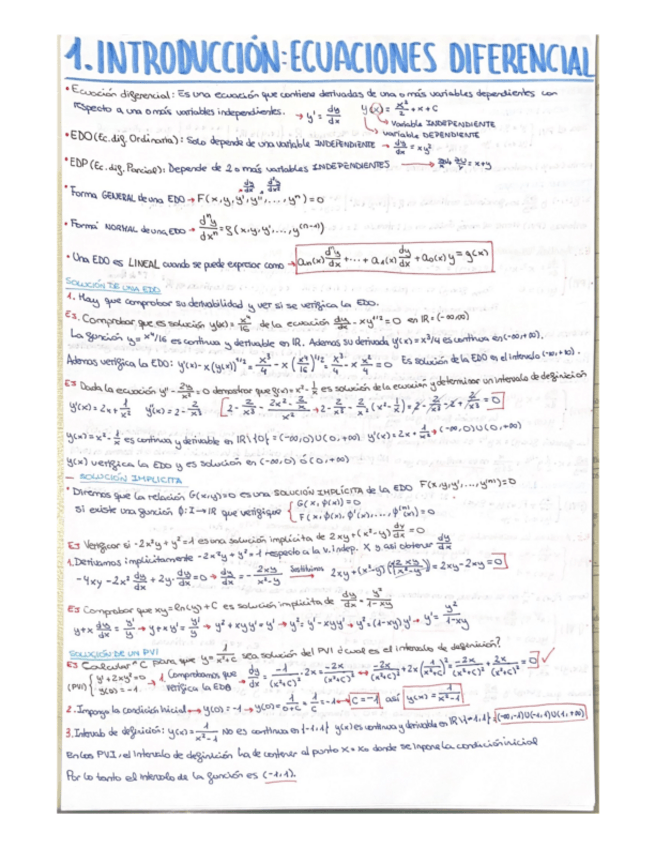 1. INTRODUCCIÓN: ECUACIONES DIFERENCIAL
• Ecuación diferencial: Es una ecuación que contiene derivadas de una o más variables dependientes con
respecto a una o más variables independientes. → y' = dy/dx   y(x) = x²/2 + x + C
→ Variable INDEPENDIENTE
→ variable DEPENDIENTE
• EDO (Ec. dif. Ordinaria): Solo depende de una variable INDEPENDIENTE → dy/dx = xy²
• EDP (Ec. dif. Parcial): Depende de 2 o más variables INDEPENDIENTES → = x+y
• Forma GENERAL de una EDO → F(x, y, y', y'', ..., yⁿ) = 0
• Forma NORMAL de una EDO → dⁿy/dxⁿ = f(x, y, y', ..., y⁽ⁿ⁻¹⁾)
• Una EDO es LINEAL cuando se puede expresar como → aₙ(x) dⁿy/dx + ... + a₁(x) dy/dx + a₀(x) y = g(x)
SOLUCIÓN DE UNA EDO
1. Hay que comprobar su derivabilidad y ver si se verifica la EDO.
Ej. Comprobar que es solución y(x) = x⁴/16 de la ecuación dy/dx - xy^1/2 = 0 en IR = (-∞,∞)
La función y = x⁴/16 es continua y derivable en IR. Ademas su derivada y'(x) = x³/4 es continua en (-∞,+∞).
Ademas verifica la EDO: y'(x) - x(y(x))^1/2 = x³/4 - x(x⁴/16)^1/2 = x³/4 - x x²/4 = 0   Es solución de la EDO en el intervalo (-∞,+∞).
Ej Dada la ecuación y'' - 2y/x² = 0 demostrar que f(x) = x² - 1/x es solución de la ecuación y determinar un intervalo de definición
y'(x) = 2x + 1/x²   y''(x) = 2 - 2/x³
y(x) = x² - 1/x es continua y derivable en IR\{0} = (-∞,0)U(0,+∞)   y'(x) = 2x + 1/x² → (-∞,0)U(0,+∞)
y(x) verifica la EDO y es solución en (-∞,0) ó (0,+∞)
- SOLUCIÓN IMPLICITA
• Diremos que la relación G(x,y)=0 es una SOLUCIÓN IMPLÍCITA de la EDO F(x,y,y',...,y⁽ⁿ⁾)=0
si existe una función ϕ: I→IR que verifique { G(x, ϕ(x)) = 0
F(x, ϕ(x), ϕ'(x), ..., ϕ⁽ⁿ⁾(x)) = 0
Ej Verificar si -2x²y + y² = 1 es una solución implicita de 2xy + (x²-y) dy/dx = 0
1. Derivamos implícitamente -2x²y + y² = 1 respecto a la v. indep. x y así obtener dy/dx
-4xy - 2x² dy/dx + 2y · dy/dx = 0 → dy/dx = - 2xy/(x²-y)   Sustituimos → 2xy + (x²-y)(-2xy/(x²-y)) = 2xy - 2xy = 0
Ej Comprobar que xy = ln(y) + C es solución implicita de dy/dx = y²/(1-xy)
y + x dy/dx = y'/y → y + xy' = y'/y → y² + xyy' = y' → y² = y' - xyy' → y² = (1-xy)y' → y' = y²/(1-xy)
SOLUCIÓN DE UN PVI
Ej Calcular C para que y = 1/(x²+C) sea solución del PVI ¿cual es el intervalo de definición?
(PVI) { y' + 2xy² = 0
y(0) = -1. → 1. Comprobamos que verifica la EDO   dy/dx = -1/(x²+C)² · 2x = -2x/(x²+C)² → -2x/(x²+C)² + 2x(1/(x²+C))² = -2x/(x²+C)² + 2x/(x²+C)² = 0 ✓
2. Impongo la condición inicial → y(0) = -1 → y(0) = 1/(0+C) = 1/C = -1 → C = -1 así y(x) = 1/(x²-1)
3. Intervalo de definición: y(x) = 1/(x²-1) No es continua en {-1,1} y(x) es continua y derivable en IR\{-1,1} = (-∞,-1)U(-1,1)U(1,+∞)
En los PVI, el intervalo de definición ha de contener al punto x = x₀ donde se impone la condición inicial
Por lo tanto el intervalo de la función es (-1,1).